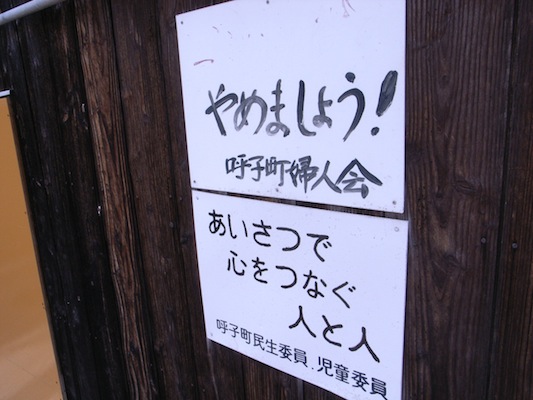 やめましょう!
呼子町婦人会
あいさつで
心をつなぐ
人と人
呼子町民生委員.児童委員